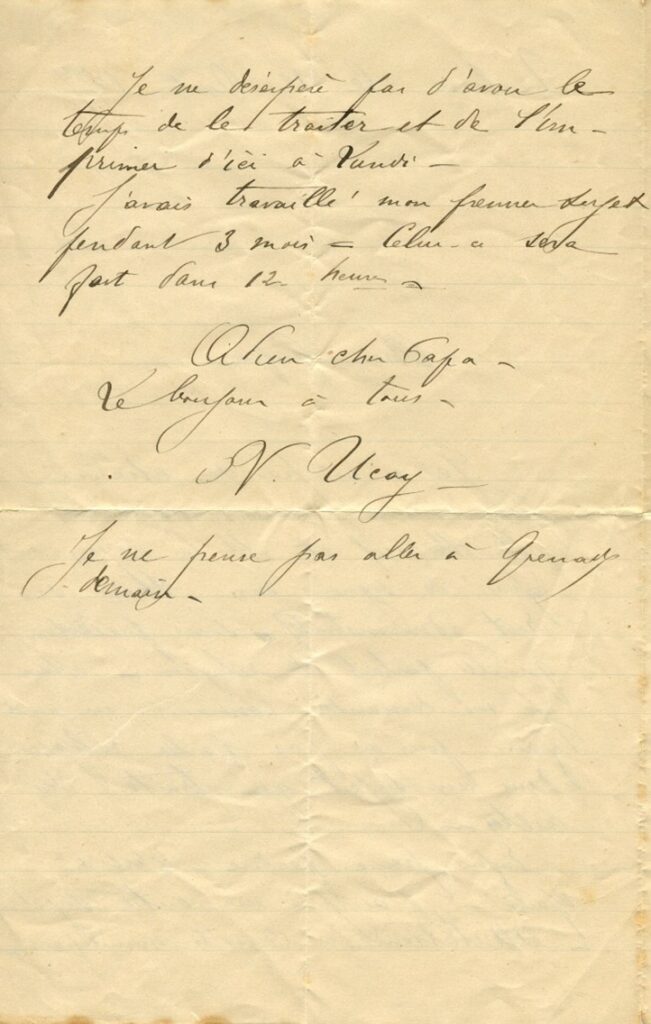 Je ne désespère pas d'avoir le
temps de le traiter et de l'im-
primer d'ici à Lundi -
J'avais travaillé mon premier sujet
pendant 3 mois = Celui-ci sera
fait dans 12 heures -
Adieu cher Papa -
Le bonjour à tous -
N. Ucay -
Je ne pense pas aller à Grenade
demain -